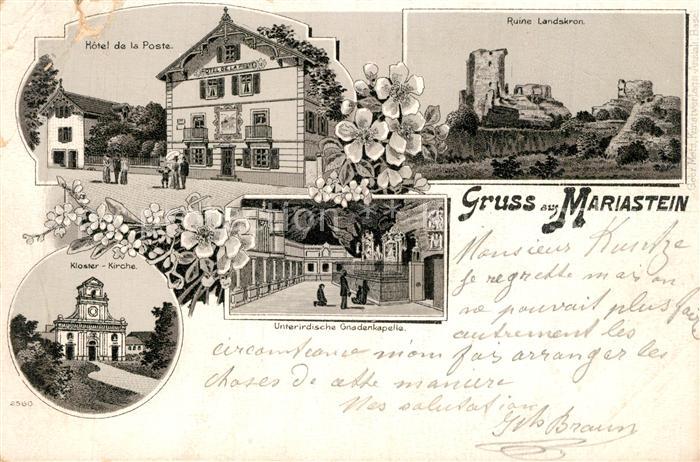 Hôtel de la Poste.
HÔTEL DE LA POSTE
Ruine Landskron.
Gruss aus MARIASTEIN
Kloster-Kirche.
Unterirdische Gnadenkapelle.
2560
Monsieur
je regrette mais on
ne pouvait plus
autrement les
circomtance mom fais arranger les
choses de cette maniere
Mes salutation
Braun